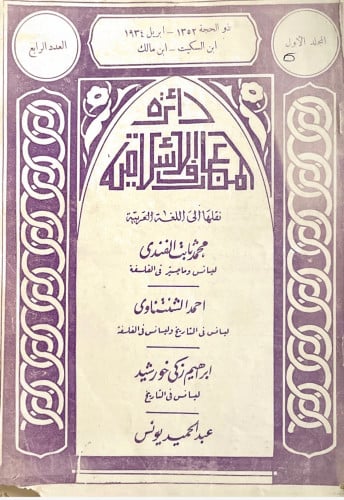 المجلد الأول
ذو الحجة ١٣٥٢ - ابريل ١٩٣٤
ابن السكيت - ابن مالك
العدد الرابع
دائرة
المعارف الإسلامية
نقلها إلى اللغة العربية
محمد ثابت الفندى
ليسانس وماجستير فى الفلسفة
احمد الشنتناوى
ليسانس فى التاريخ وليسانس فى الفلسفة
ابرهيم زكى خورشيد
ليسانس فى التاريخ
عبد الحميد يونس